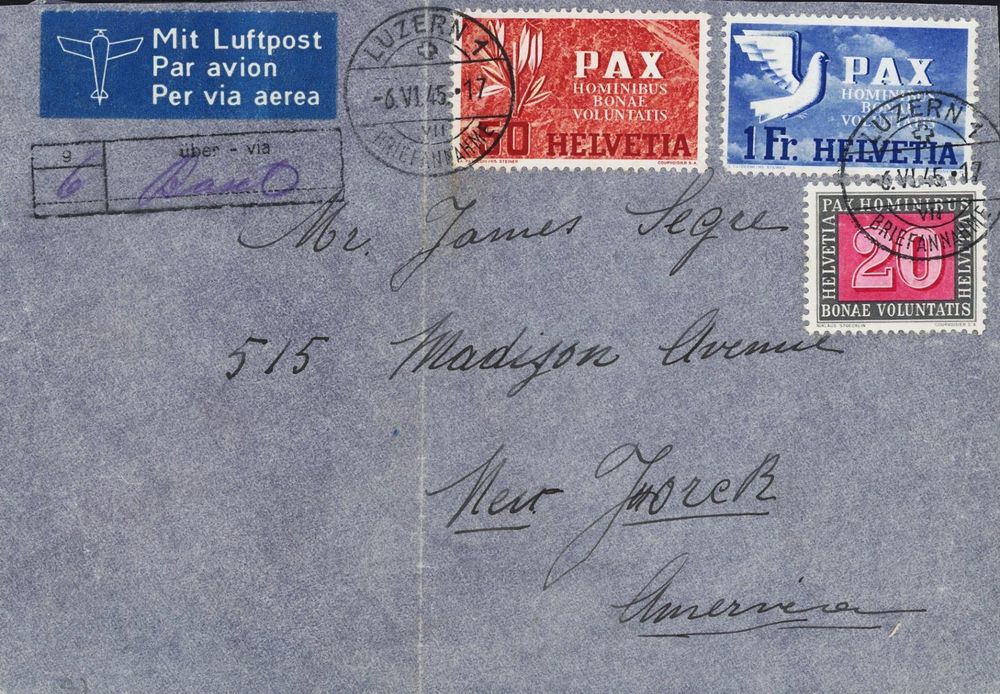 Mit Luftpost
Par avion
Per via aerea
9
über - via
6 Basel
LUZERN 1
-6.VI.45.•17
VII
BRIEFANNAHME
PAX
HOMINIBUS
BONAE
VOLUNTATIS
60 HELVETIA
COURVOISIER S.A.
PAX
HOMINIBUS
BONAE
VOLUNTATIS
1 Fr. HELVETIA
LUZERN 1
-6.VI.45.•17
VII
BRIEFANNAHME
PAX HOMINIBUS
HELVETIA
20
HELVETIA
BONAE VOLUNTATIS
NIKLAUS STOECKLIN
COURVOISIER S.A.
Mr. James Segre
515 Madison Avenue
New Jworck
Amerrica